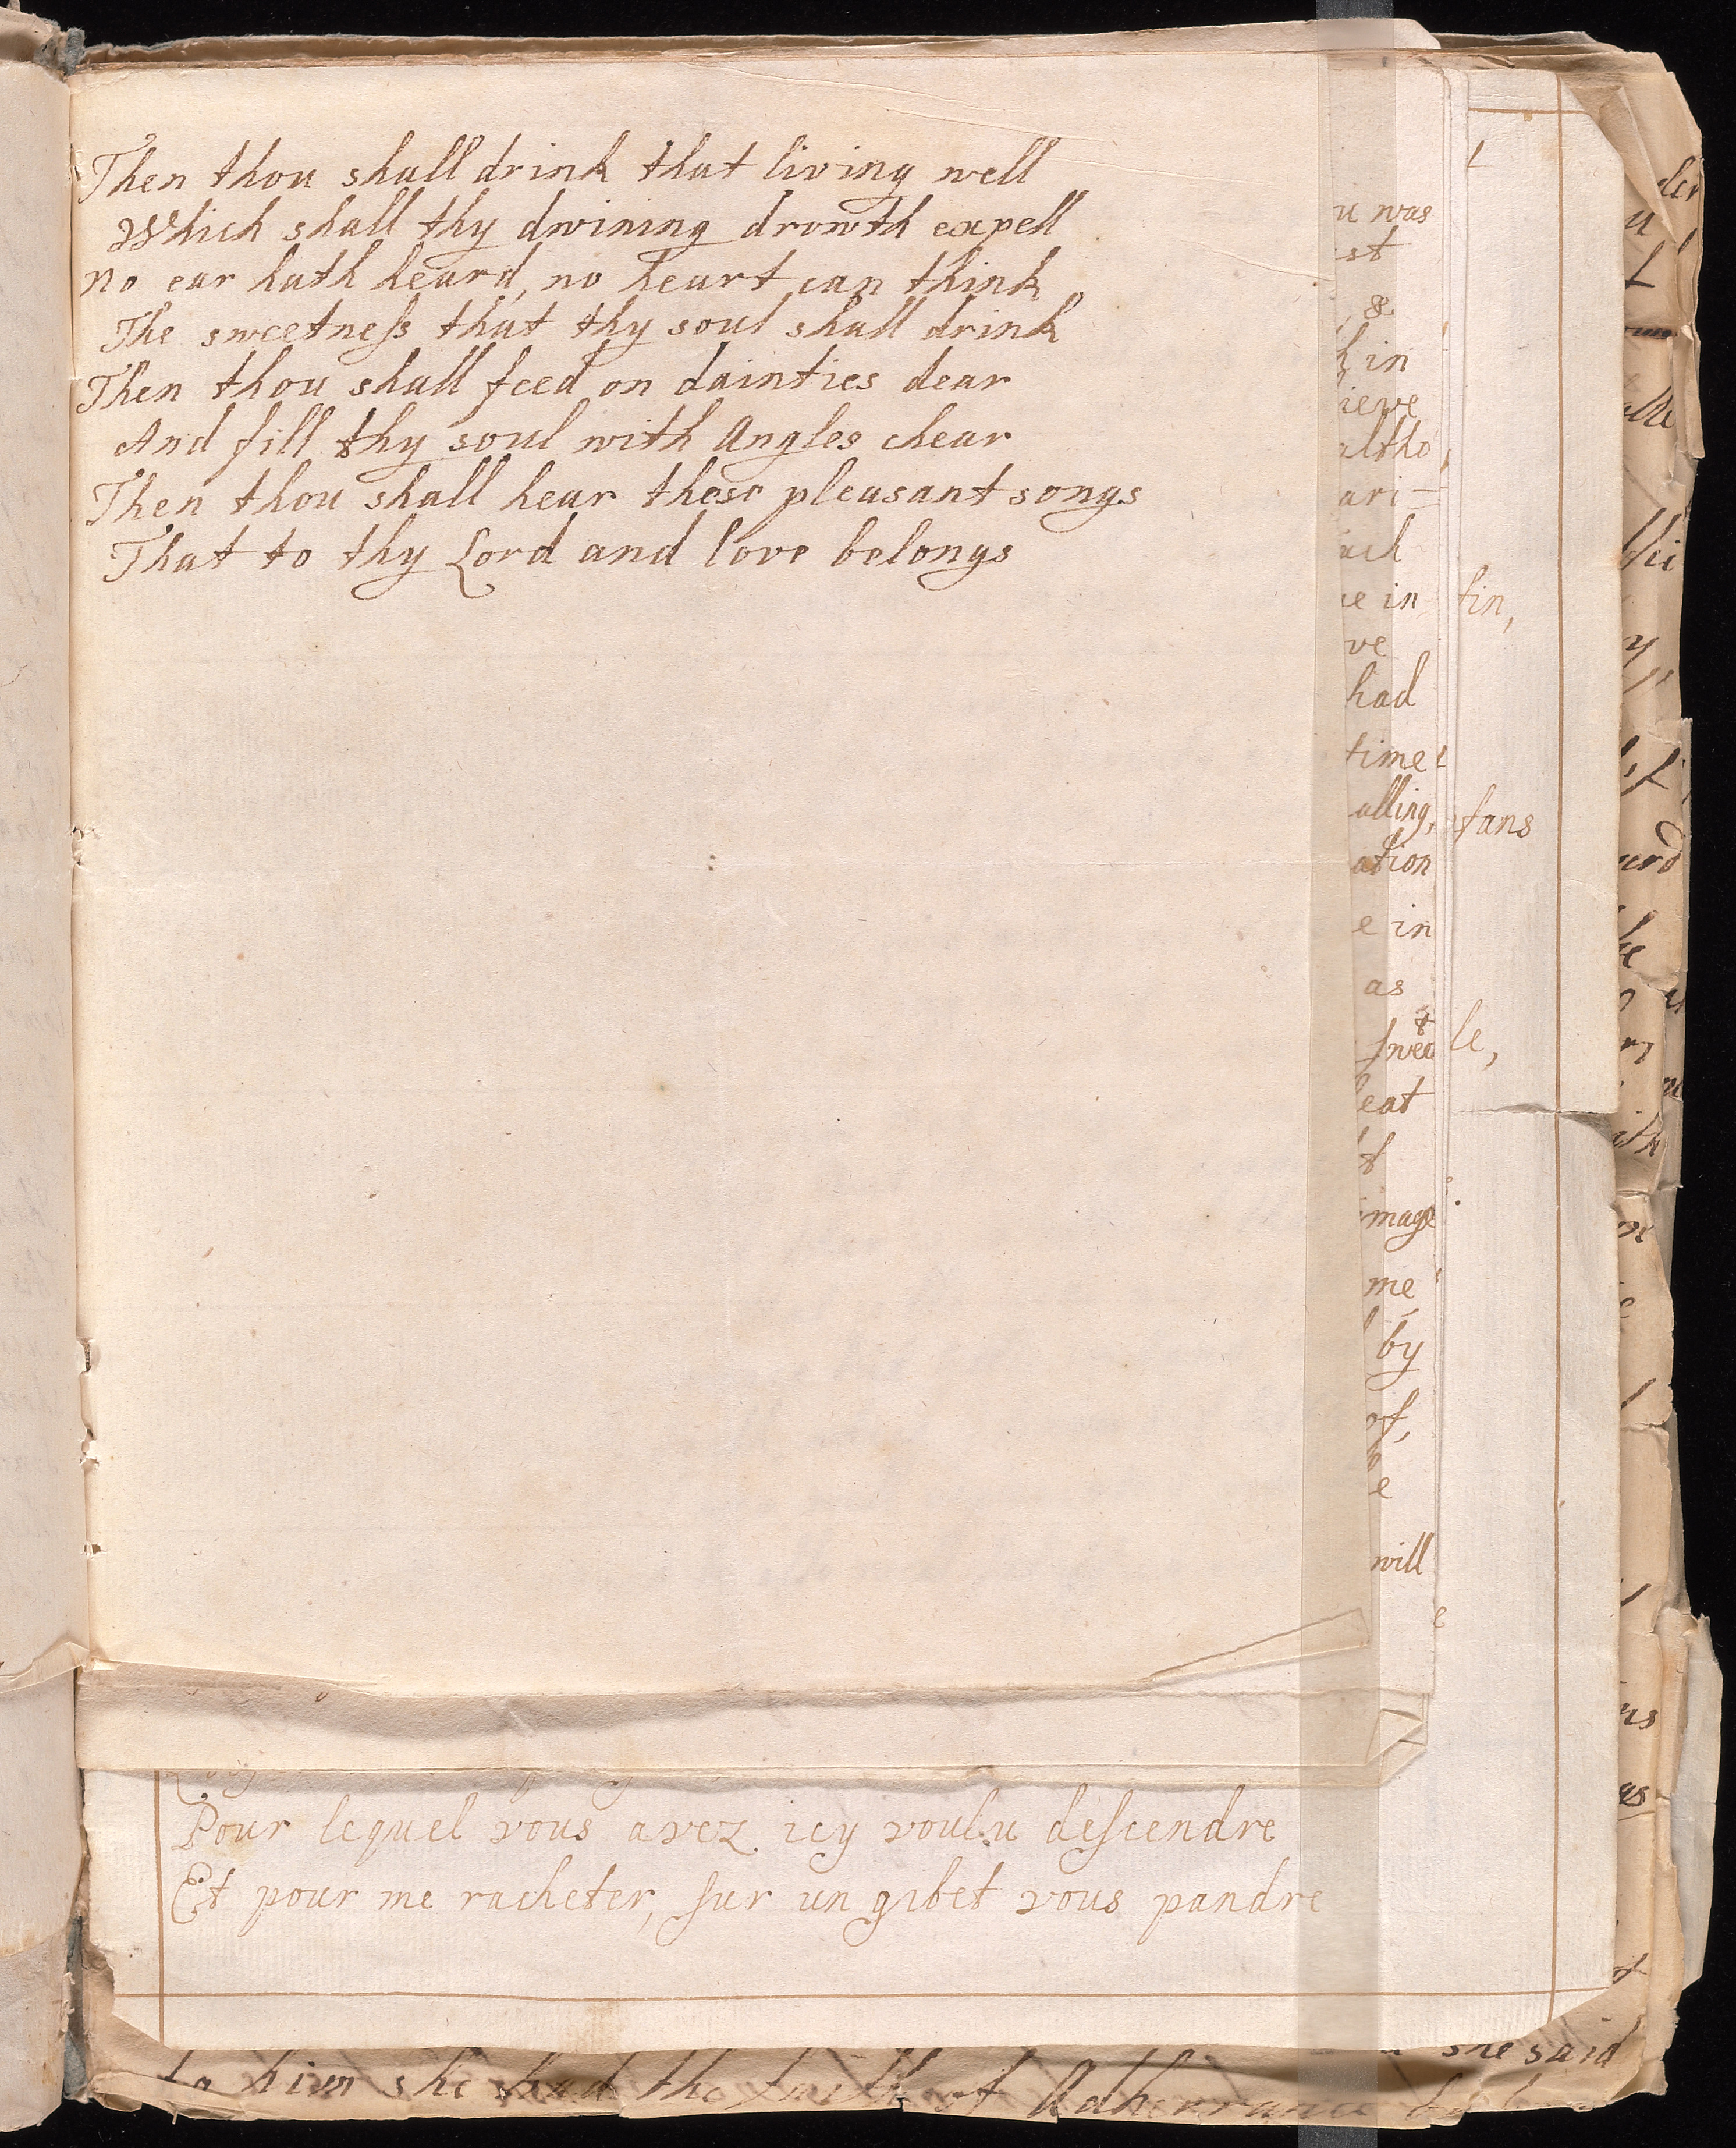 Then thou shall drink that living well
Which shall thy dwining drowth expell
No ear hath heard, no heart can think
The sweetneſs that thy soul shall drink
Then thou shall feed on dainties dear
And fill thy soul with Angles chear
Then thou shall hear these pleasant songs
That to thy Lord and love belongs
u was
st
&
h in
ieve
altho
ari=
ach
e in
fin,
ve
had
time
alling,
fans
ation
e in
as
le,
eat
image
me
by
of,
e
will
Pour lequel vous avez icy voulu deſcendre
Et pour me racheter, ſur un gibet vous pandre
she said
to him she had the faith of Adherrance